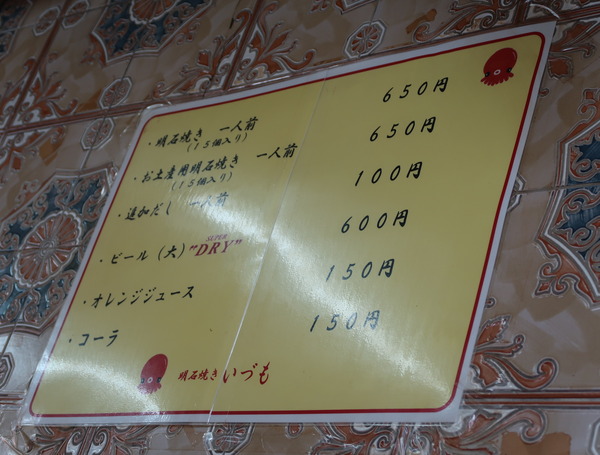 ・明石焼き 一人前 650円
(15個入り)
・お土産用明石焼き 一人前 650円
(15個入り)
・追加だし 一人前 100円
・ビール (大) "SUPER DRY" 600円
・オレンジジュース 150円
・コーラ 150円
明石焼き いづも